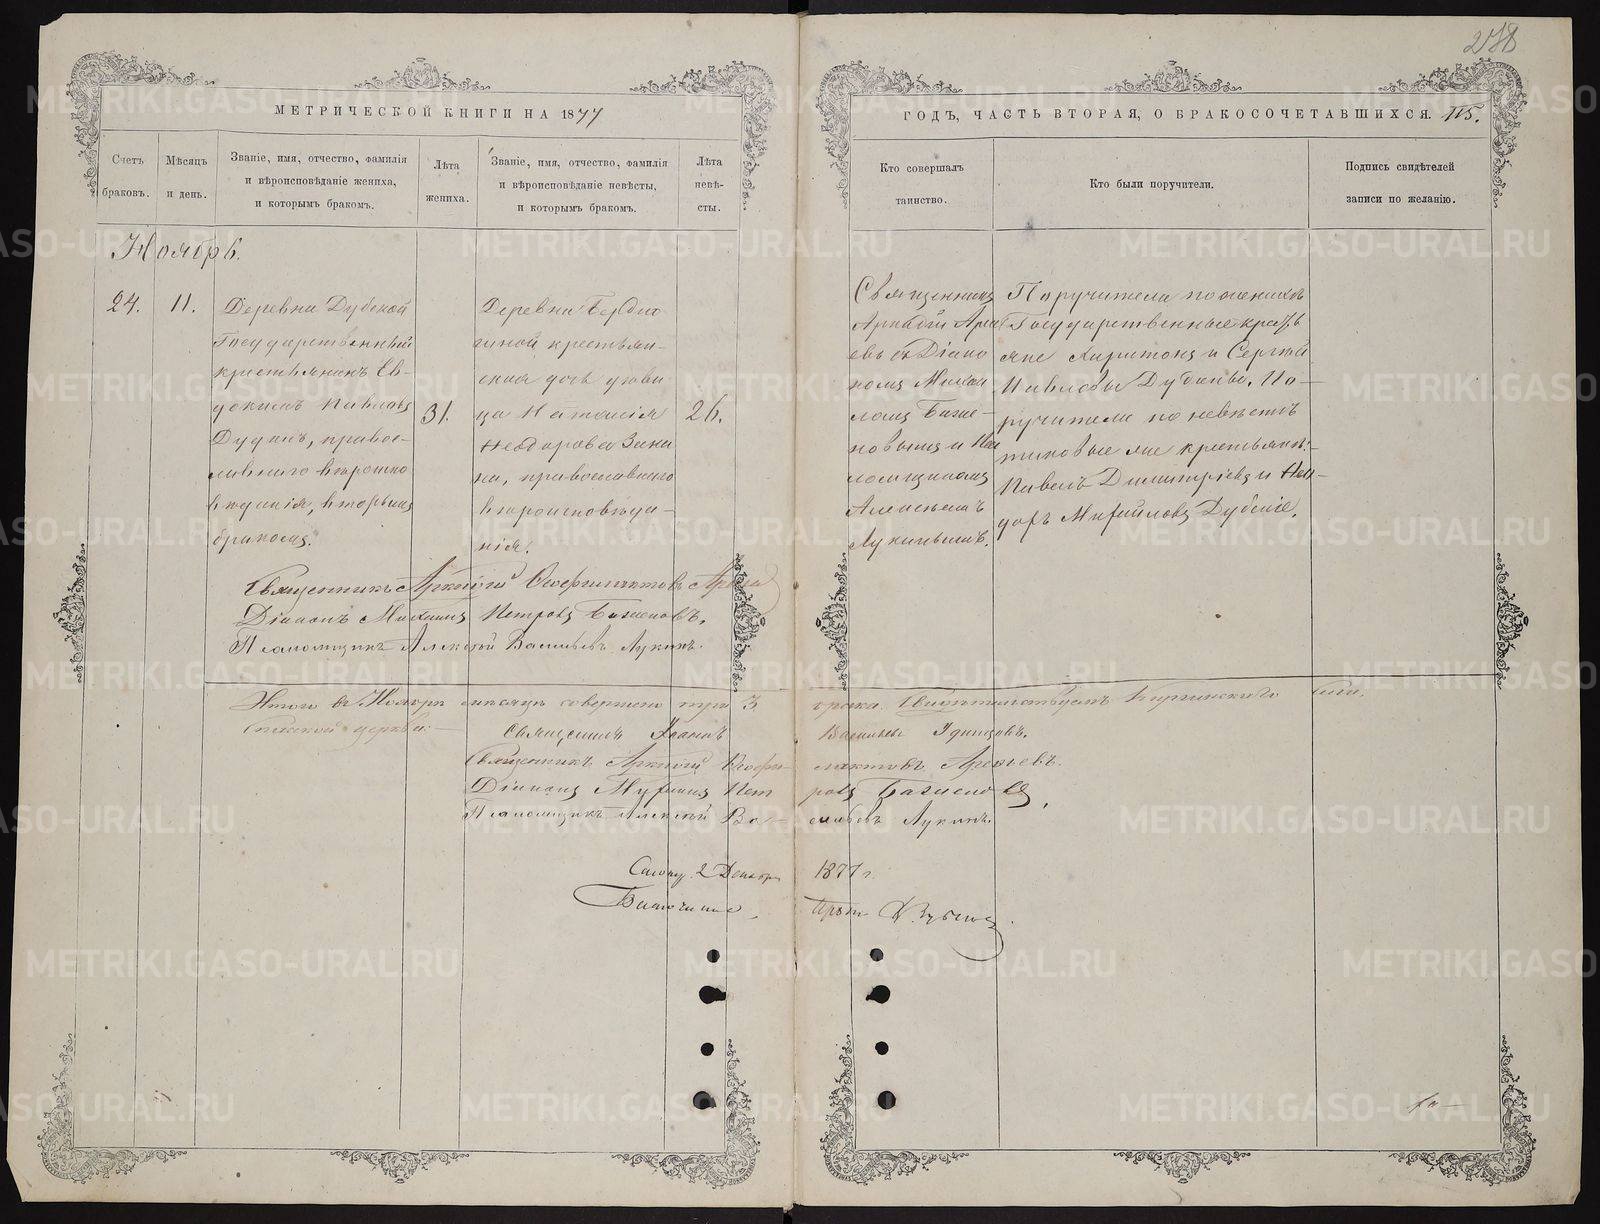 278
МЕТРИЧЕСКОЙ КНИГИ НА 1877
ГОДЪ, ЧАСТЬ ВТОРАЯ, О БРАКОСОЧЕТАВШИХСЯ. 115.
Счетъ
браковъ.
Мѣсяцъ
и день.
Званіе, имя, отчество, фамилія
и вѣроисповѣданіе жениха,
и которымъ бракомъ.
Лѣта
жениха.
Званіе, имя, отчество, фамилія
и вѣроисповѣданіе невѣсты,
и которымъ бракомъ.
Лѣта
невѣ-
сты.
Кто совершалъ
таинство.
Кто были поручители.
Подпись свидѣтелей
записи по желанію.
Ноябрь.
24.
11.
Деревни Дубской
Государственный
крестьянинъ Ев-
докимъ Павловъ
православ-
наго вѣроиспо
вѣданія, вторымъ
бракомъ.
31.
Деревни
гиной крестьян-
ская дочь дѣви
ца
Ѳеодорова Зяки
на, православнаго
вѣроисповѣда-
нія.
26.
Священникъ
Аркадій Арсе
евъ съ Діако
номъ Михаи
ломъ Бажен
новымъ и Пса
ломщикомъ
Алексѣемъ
Лукинымъ.
Поручители по женихѣ
Государственные кресть
яне Харитонъ и Сергѣй
Павловы По-
ручители по невѣстѣ
таковые же крестьяне:
Павелъ Димитріевъ и Ѳео-
доръ Михайловъ Дубскіе.
Священникъ Аркадій Ѳеофилактовъ
Діаконъ Михаилъ Петровъ Баженовъ.
Псаломщикъ Алексѣй Васильевъ Лукинъ.
Итого въ Ноябрѣ мѣсяцѣ совершено при 3 брака. Свидѣтельствуемъ
Спасской церкви:
Священникъ Іоаннъ Васильевъ Удинцовъ.
Священникъ Аркадій Ѳеофи-лактовъ Арсеньевъ.
Діаконъ Михаилъ Петровъ Баженовъ,
Псаломщикъ Алексѣй Ва-сильевъ Лукинъ.
2 Декабря 1877 г.
Благочинный,
METRIKI.GASO-URAL.RU